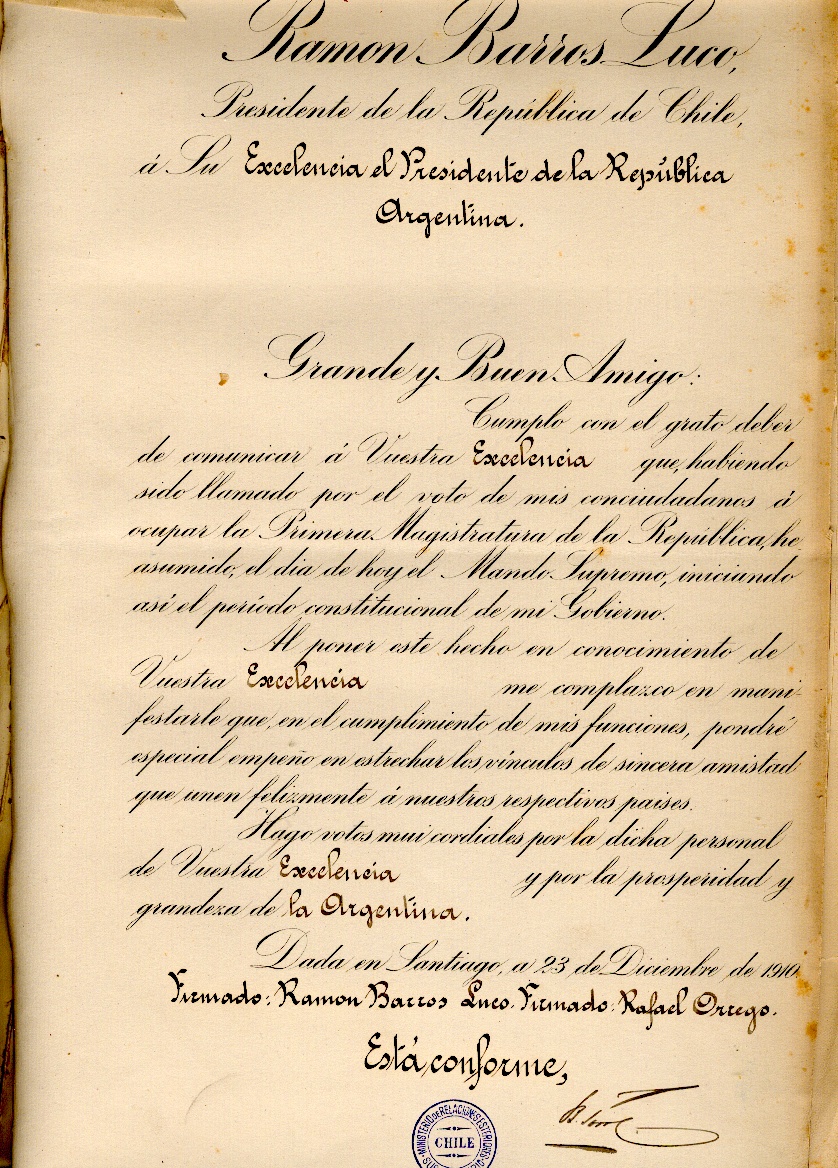 Ramon Barros Luco,
Presidente de la República de Chile,
á Su Excelencia el Presidente de la República
Argentina.
Grande y Buen Amigo:
Cumplo con el grato deber
de comunicar á Vuestra Excelencia que, habiendo
sido llamado por el voto de mis conciudadanos á
ocupar la Primera Magistratura de la República, he
asumido, el dia de hoy el Mando Supremo, iniciando
así el período constitucional de mi Gobierno.
Al poner este hecho en conocimiento de
Vuestra Excelencia me complazco en mani-
festarle que, en el cumplimiento de mis funciones, pondré
especial empeño en estrechar los vínculos de sincera amistad
que unen felizmente á nuestros respectivos paises.
Hago votos mui cordiales por la dicha personal
de Vuestra Excelencia y por la prosperidad y
grandeza de la Argentina.
Dada en Santiago, a 23 de Diciembre de 1910
Firmado: Ramon Barros Luco. Firmado: Rafael Orrego.
Está conforme,
MINISTERIO DE RELACIONES ESTERIORES
CHILE